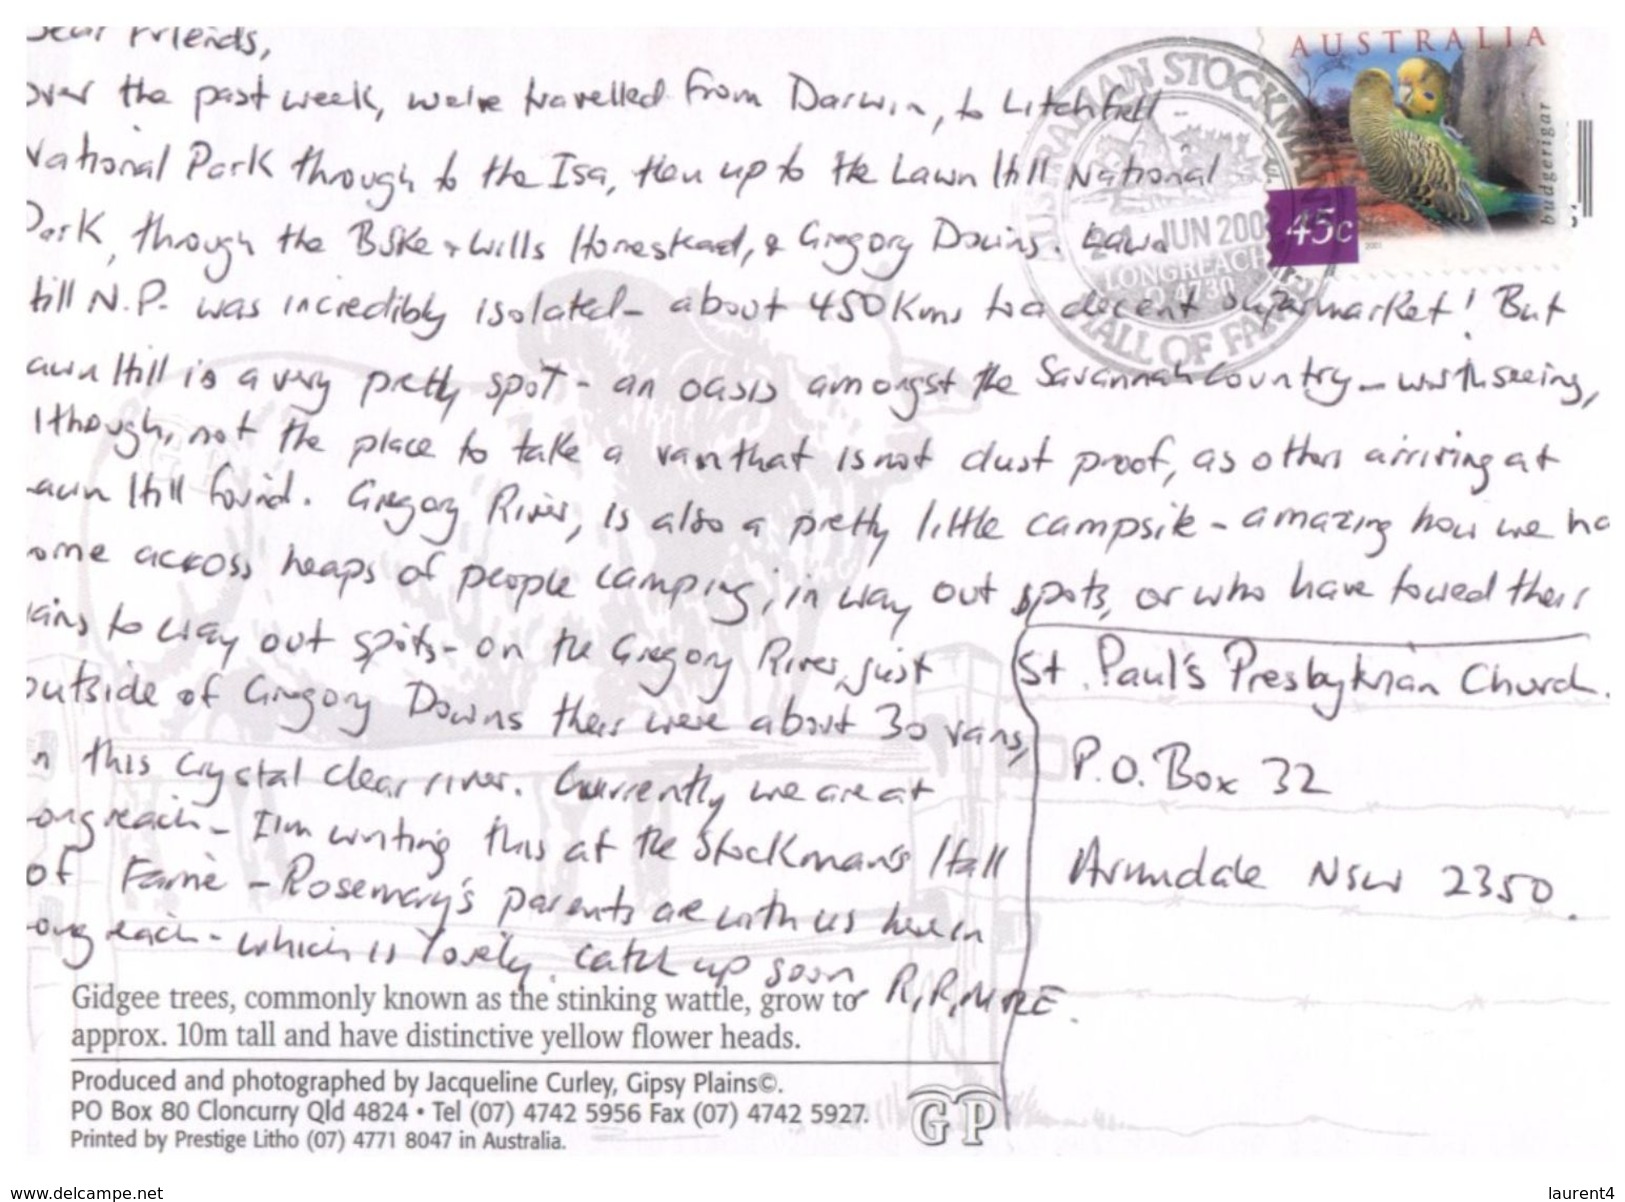 Dear Friends,
over the past week, we've travelled from Darwin, to Litchfield
National Park through to the Isa, then up to the Lawn Hill National
Park, through the Burke + Wills Homestead, & Gregory Downs. Lawn
Hill N.P. was incredibly isolated - about 450 Kms to a decent supermarket! But
awn Hill is a very pretty spot - an oasis amongst the Savannah Country - worth seeing,
lthough, not the place to take a van that is not dust proof, as others arriving at
awn Hill found. Gregory River, is also a pretty little campsite - amazing how we ha
ome across heaps of people camping, in way out spots, or who have towed their
vans to way out spots - on the Gregory River, just
outside of Gregory Downs their were about 30 vans,
n this crystal clear river. Currently we are at
ongreach - I'm writing this at the Stockman's Hall
of Fame - Rosemary's parents are with us here in
ongreach - which is lovely. catch up soon R, R, M R E.
St. Paul's Presbyterian Church.
P.O. Box 32
Armidale NSW 2350.
AUSTRALIA
budgerigar
45c
2001
AUSTRALIAN STOCKMAN'S
21 JUN 200
LONGREACH
4730
HALL OF FAME
Gidgee trees, commonly known as the stinking wattle, grow to
approx. 10m tall and have distinctive yellow flower heads.
Produced and photographed by Jacqueline Curley, Gipsy Plains©.
PO Box 80 Cloncurry Qld 4824 • Tel (07) 4742 5956 Fax (07) 4742 5927.
Printed by Prestige Litho (07) 4771 8047 in Australia.
GP
www.delcampe.net
laurent4